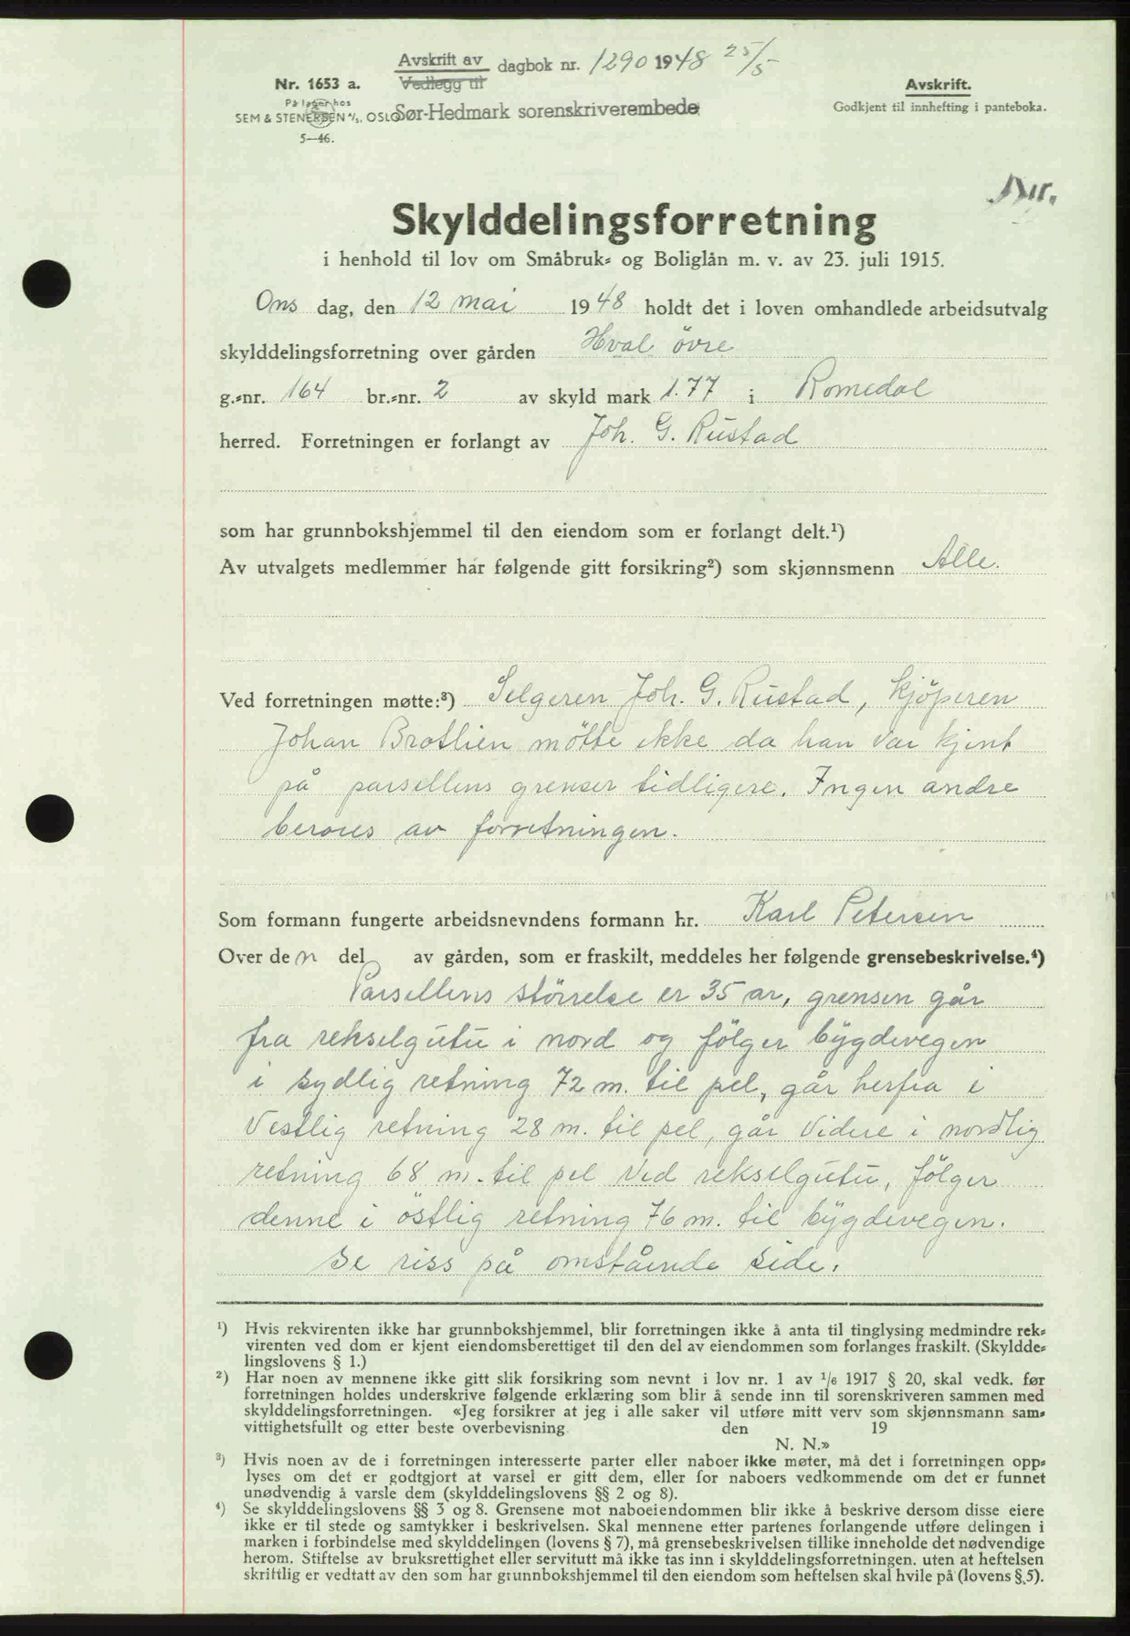 Avskrift av
Vedlegg til
dagbok nr. 1290 1948 25/5
Sør-Hedmark sorenskriverembede
Nr. 1653 a.
På lager hos
SEM & STENERSEN A/S. OSLO
5—46.
Avskrift.
Godkjent til innhefting i panteboka.
Skylddelingsforretning
i henhold til lov om Småbruk- og Boliglån m. v. av 23. juli 1915.
Ons dag, den 12 mai 1948 holdt det i loven omhandlede arbeidsutvalg
skylddelingsforretning over gården Hval övre
g.-nr. 164 br.-nr. 2 av skyld mark 1.77 i Romedal
herred. Forretningen er forlangt av Joh. G. Rustad
som har grunnbokshjemmel til den eiendom som er forlangt delt.¹)
Av utvalgets medlemmer har følgende gitt forsikring²) som skjønnsmenn Alle.
Ved forretningen møtte:³) Selgeren Joh. G. Rustad, kjöperen
Johan Bratlien mötte ikke da han var kjent
på parsellens grenser tidligere. Ingen andre
beröres av forretningen.
Som formann fungerte arbeidsnevndens formann hr. Karl Petersen
Over den del av gården, som er fraskilt, meddeles her følgende grensebeskrivelse.⁴)
Parsellens störrelse er 35 ar, grensen går
fra rekselgutu i nord og fölger bygdevegen
i sydlig retning 72 m. til pel, går herfra i
vestlig retning 28 m. til pel, går videre i nordlig
retning 68 m. til pel ved rekselgutu, fölger
denne i östlig retning 76 m. til bygdevegen.
Se riss på omstående side.
¹) Hvis rekvirenten ikke har grunnbokshjemmel, blir forretningen ikke å anta til tinglysing medmindre rek-
virenten ved dom er kjent eiendomsberettiget til den del av eiendommen som forlanges fraskilt. (Skyldde-
lingslovens § 1.)
²) Har noen av mennene ikke gitt slik forsikring som nevnt i lov nr. 1 av 1/6 1917 § 20, skal vedk. før
forretningen holdes underskrive følgende erklæring som blir å sende inn til sorenskriveren sammen med
skylddelingsforretningen. «Jeg forsikrer at jeg i alle saker vil utføre mitt verv som skjønnsmann sam-
vittighetsfullt og etter beste overbevisning den 19
N. N.»
³) Hvis noen av de i forretningen interesserte parter eller naboer ikke møter, må det i forretningen opp-
lyses om det er godtgjort at varsel er gitt dem, eller for naboers vedkommende om det er funnet
unødvendig å varsle dem (skylddelingslovens §§ 2 og 8).
⁴) Se skylddelingslovens §§ 3 og 8. Grensene mot naboeiendommen blir ikke å beskrive dersom disse eiere
ikke er til stede og samtykker i beskrivelsen. Skal mennene etter partenes forlangende utføre delingen i
marken i forbindelse med skylddelingen (lovens § 7), må grensebeskrivelsen tillike inneholde det nødvendige
herom. Stiftelse av bruksrettighet eller servitutt må ikke tas inn i skylddelingsforretningen, uten at heftelsen
skriftlig er vedtatt av den som har grunnbokshjemmel til den eiendom som heftelsen skal hvile på (lovens § 5).